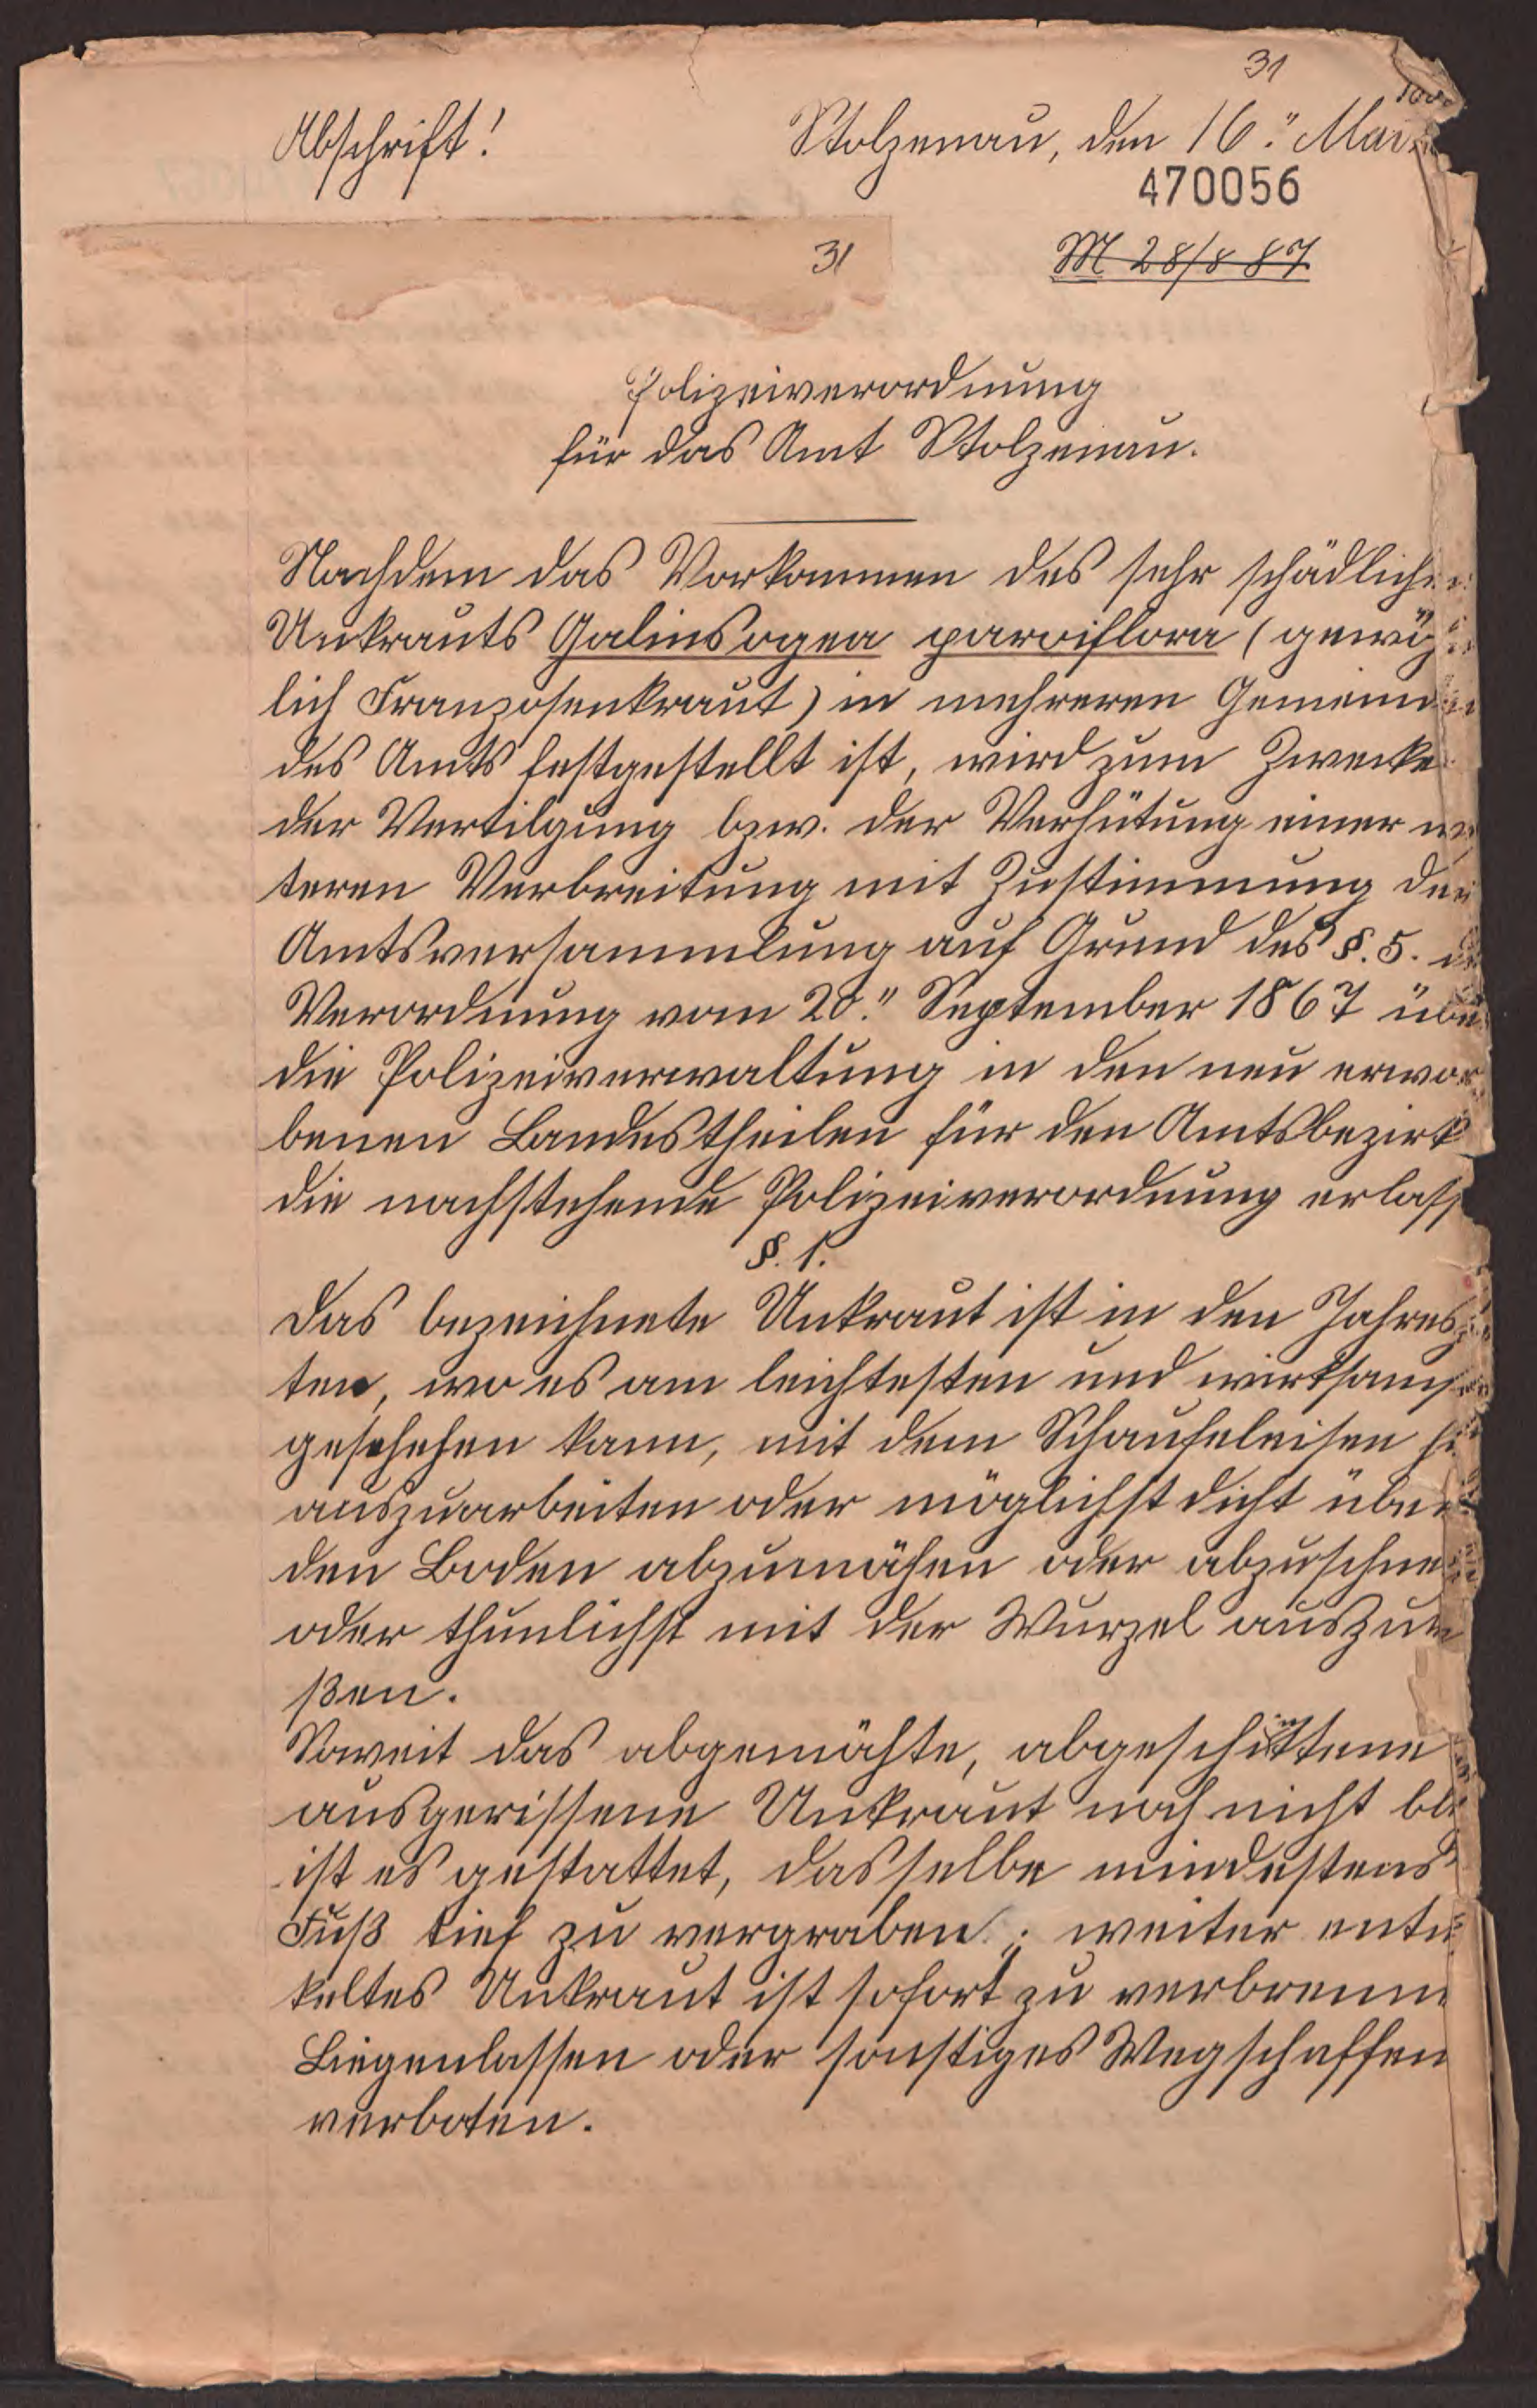 31
Abschrift!
Stolzenau, den 16." Mai
470056
31
M 28/8 87
Polizeiverordnung
für das Amt Stolzenau.
Nachdem das Vorkommen des sehr schädlichen
Unkrauts Galinsogea parviflora (gewöhn
lich Franzosenkraut) in mehreren Gemeinden
des Amts festgestellt ist, wird zum Zwecke
der Vertilgung bzw. der Verhütung einer wei
teren Verbreitung mit Zustimmung der
Amtsversammlung auf Grund des §. 5. der
Verordnung vom 20." September 1867 über
die Polizeiverwaltung in den neu erwor
benen Landestheilen für den Amtsbezirk
die nachstehende Polizeiverordnung erlass
§. 1.
Das bezeichnete Unkraut ist in den Jahresz
ten, wo es am leichtesten und wirksams
geschehen kann, mit dem Schaufeleisen
auszuarbeiten oder möglichst dicht über
den Boden abzumähen oder abzuschnei
oder thunlichst mit der Wurzel auszurei
ßen.
Soweit das abgemähte, abgeschnittene
ausgerissene Unkraut noch nicht bl
ist es gestattet, dasselbe mindestens
Fuß tief zu vergraben; weiter entw
keltes Unkraut ist sofort zu verbrenn
Liegenlassen oder sonstiges Wegschaffen
verboten.